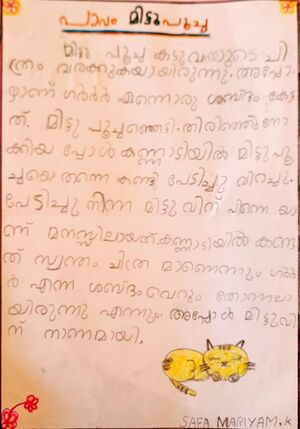 പാവം മിട്ടുപൂച്ച
മിട്ടു പൂച്ച കടുവയുടെ ചി
ത്രം വരക്കുകയായിരുന്നു. അപ്പോ
ഴാണ് ഗർർർ എന്നൊരു ശബ്ദം കേട്ട
ത്. മിട്ടു പൂച്ചഞെട്ടി. തിരിഞ്ഞുനോ
ക്കിയ പ്പോൾ കണ്ണാടിയിൽ മിട്ടുപൂ
ച്ചയെ തന്നെ കണ്ട് പേടിച്ചു വിറച്ചു.
പേടിച്ചു നിന്ന മിട്ടുവിന് പിന്നെ യാ
ണ് മനസ്സിലായത്. കണ്ണാടിയിൽ കണ്ട
ത് സ്വന്തം ചിത്ര മാണെന്നും ഗർർ
ർ എന്ന ശബ്ദം വെറും തോന്നലാ
യിരുന്നു എന്നും. അപ്പോൾ മിട്ടുവി
ന് നാണമായി.
SAFA MARIYAM.K